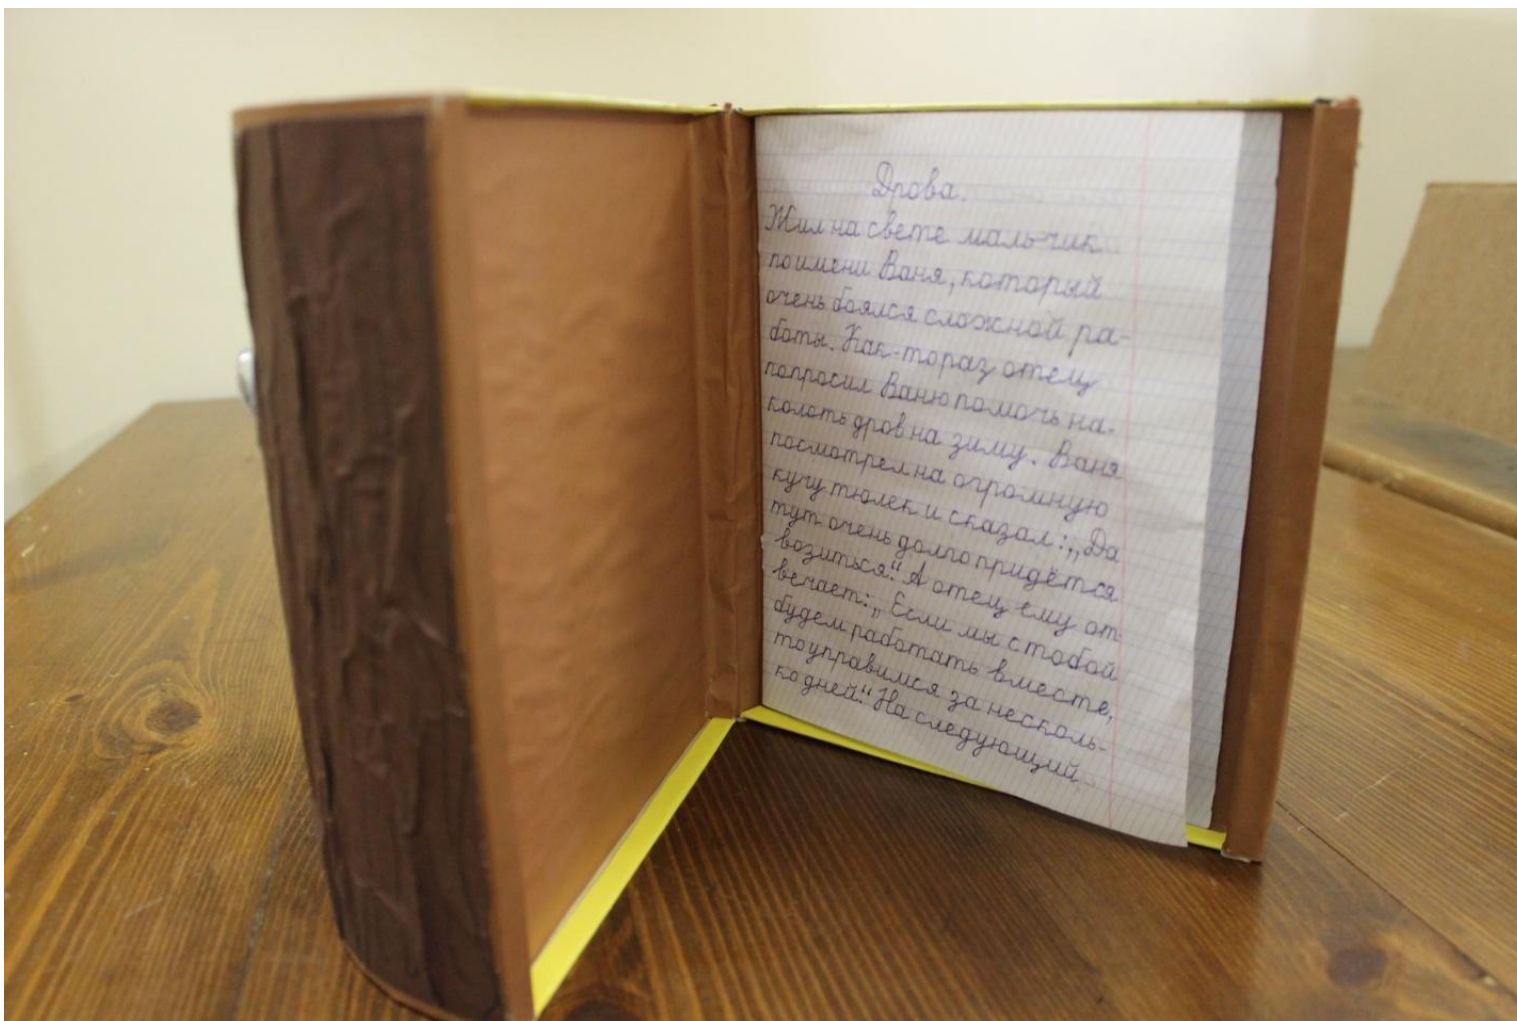 Дрова.
Жил на свете мальчик
по имени Ваня, который
очень боялся сложной ра-
боты. Как-тораз отец
попросил Ваню помочь на-
колоть дров на зиму. Ваня
посмотрел на огромную
кучу тюлек и сказал: „Да
тут очень долго придётся
возиться“. А отец ему от
вечает: „Если мы с тобой
будем работать вместе,
то управимся за несколь-
ко дней“. На следующий